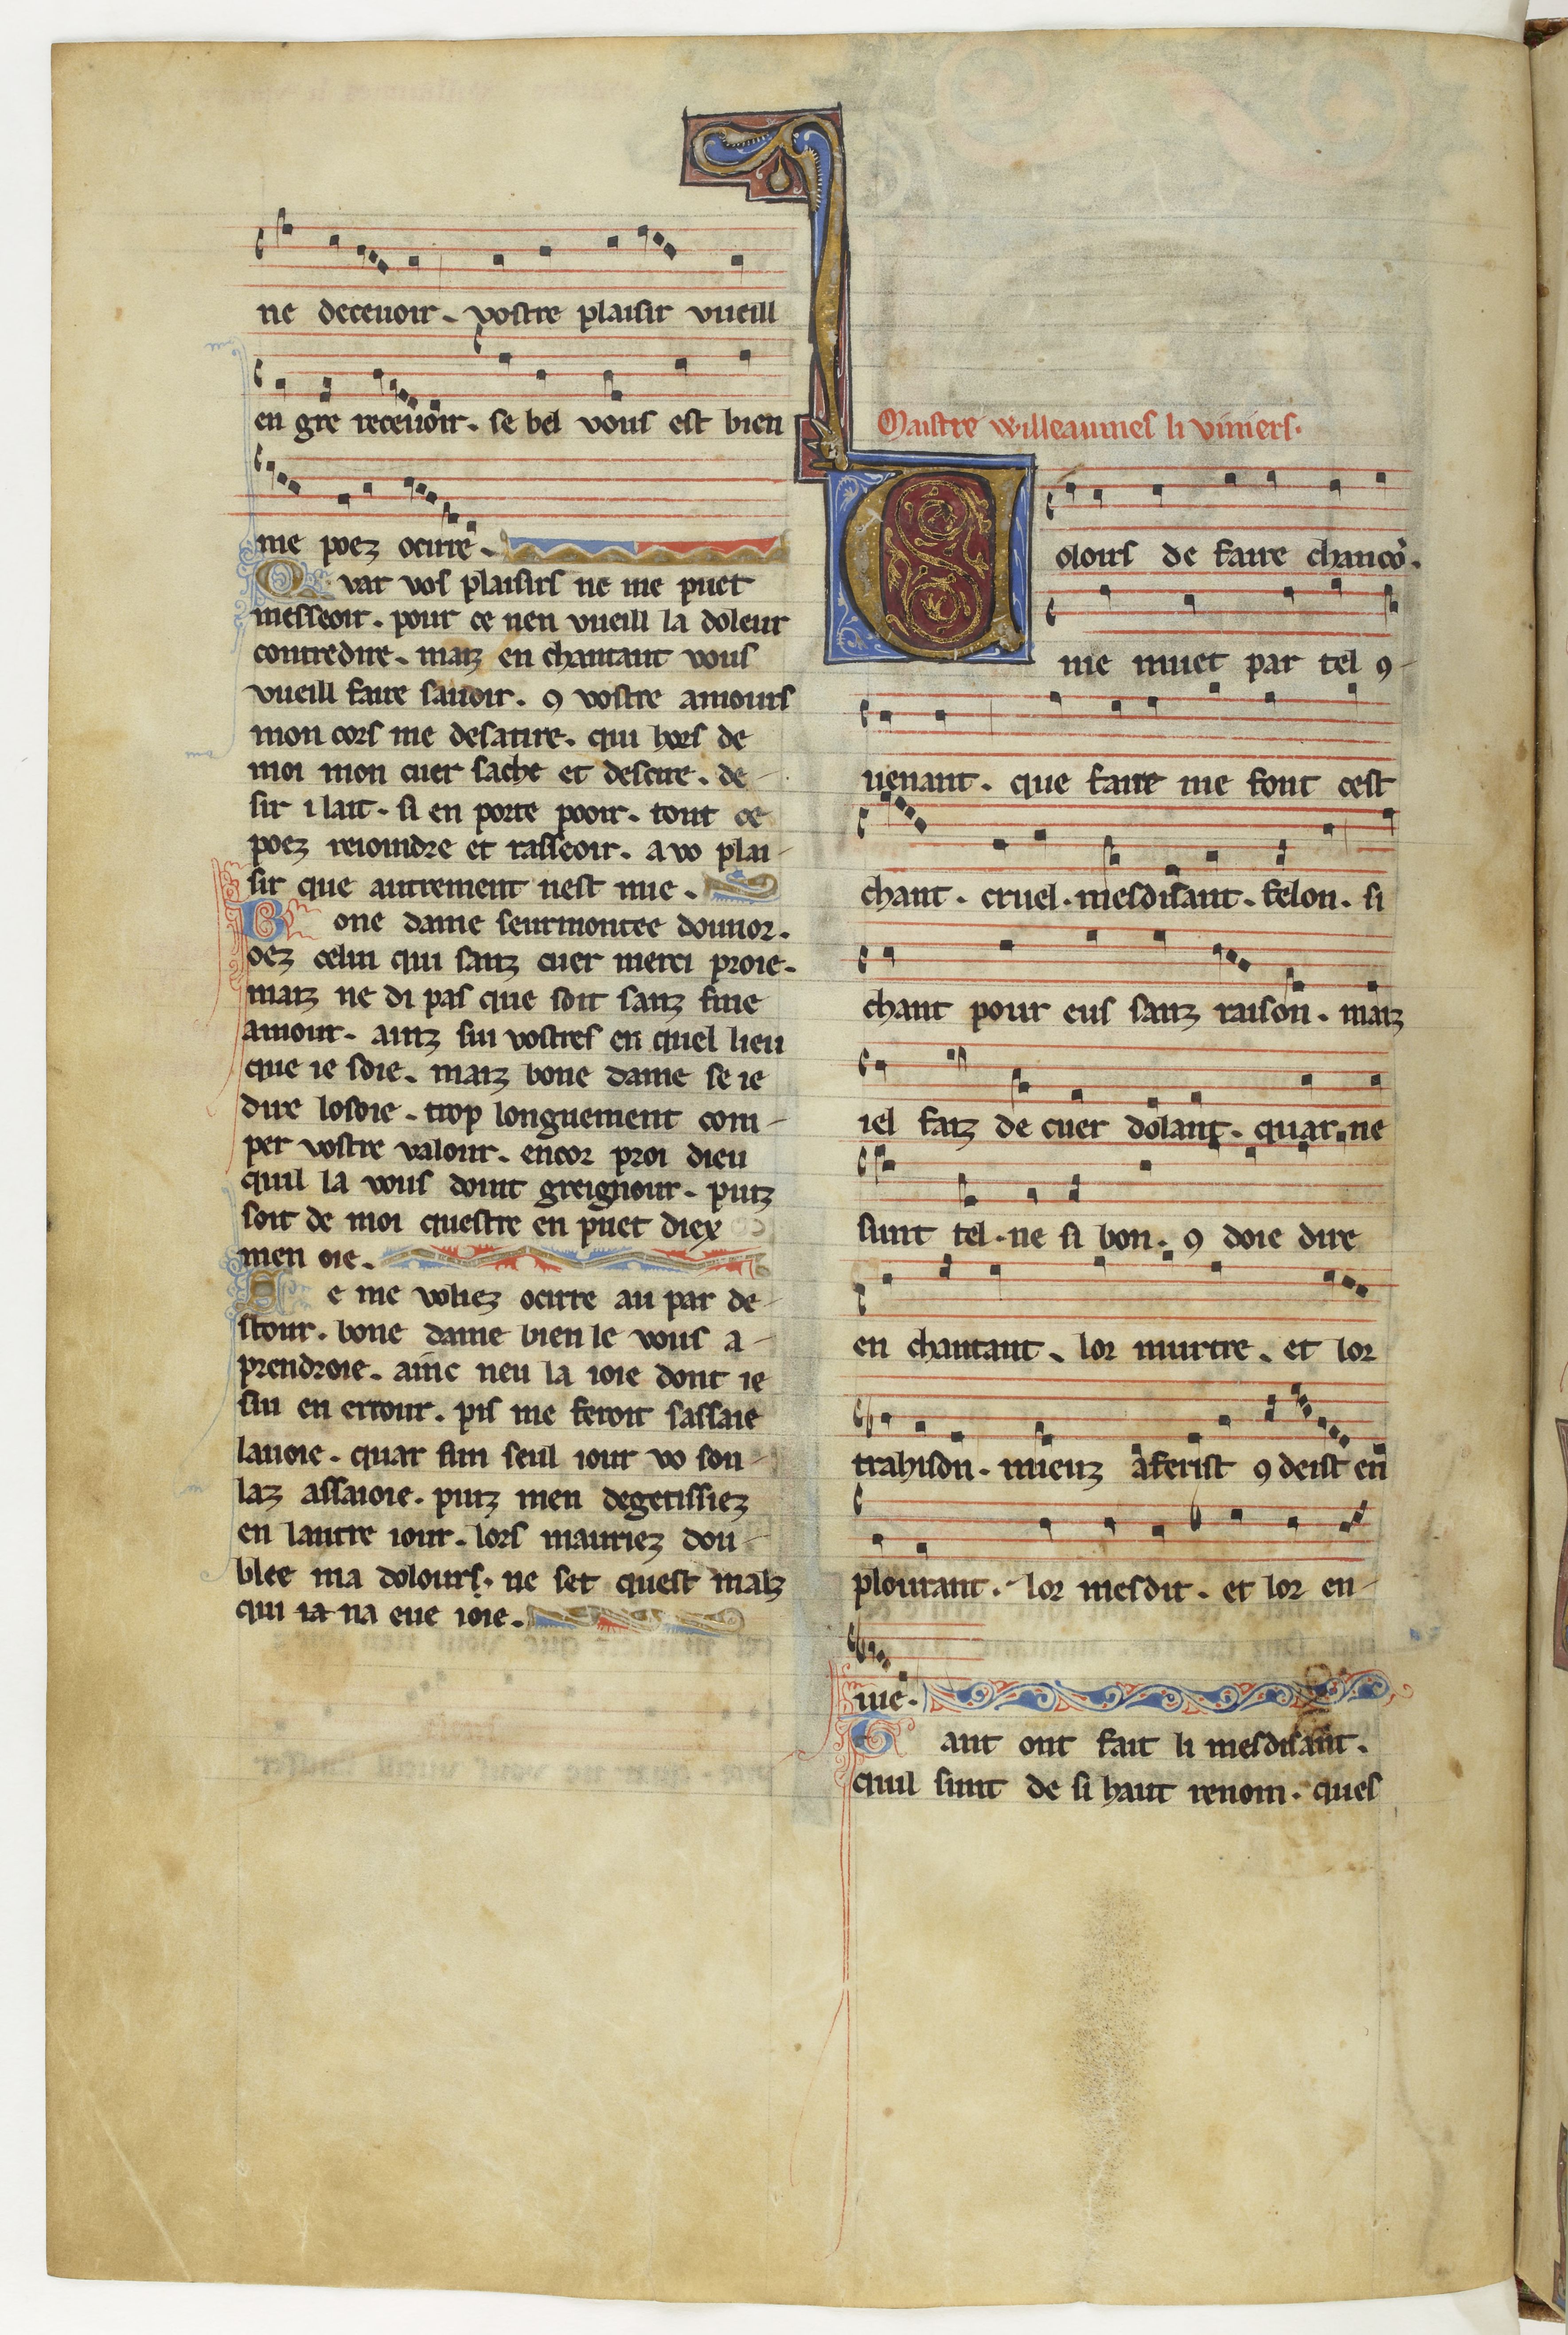 ne deceuoir. vostre plaisir vueill
en gre receuoir. se bel vous est bien
me poez ocirre.
Quar vos plaisirs ne me puet
messeoir. pour ce nen vueill la doleur
contredire. maiz en chantant vous
vueill faire sauoir. ꝯ vostre amours
mon cors me desatire. qui hors de
moi mon cuer sache et descire. de-
sir i lait. si en porte pooir. tout ce
poez reioindre et rasseoir. a vo plai-
sir que autrement nest mie.
Bone dame seurmontee dounor.
oez celui qui sanz cuer merci proie.
maiz ne di pas que soit sanz fine
amour. ainz sui vostres en quel lieu
que ie soie. maiz bone dame se ie
dire losoie. trop longuement com-
per vostre valour. encor proi dieu
quil la vous doint greignour. puiz
soit de moi questre en puet diex
men oie.
Se me voliez ocirre au par de-
stour. bone dame bien le vous a-
prendroie. ainc neu la ioie dont ie
sui en errour. pis me feroit sassaie
lauoie. quar sun seul iour vo sou-
laz assaioie. puiz men degetissiez
en lautre iour. lors mauriez dou-
blee ma dolours. ne set quest malz
qui ia na eue ioie.
Maistre willeaumes li viniers.
Dolours de faire chancō.
me muet par tel ꝯ-
uenant. que faire me font cest
chant. cruel. mesdisant. felon. si
chant pour eus sanz raison. maiz
iel faiz de cuer dolant. quar ne
sunt tel. ne si bon. ꝯ doie dire
en chantant. lor murtre. et lor
trahison. mieuz aferist ꝯ deist en
plourant. lor mesdit. et lor en-
uie.
Tant ont fait li mesdisant.
quil sunt de si haut renom. ques